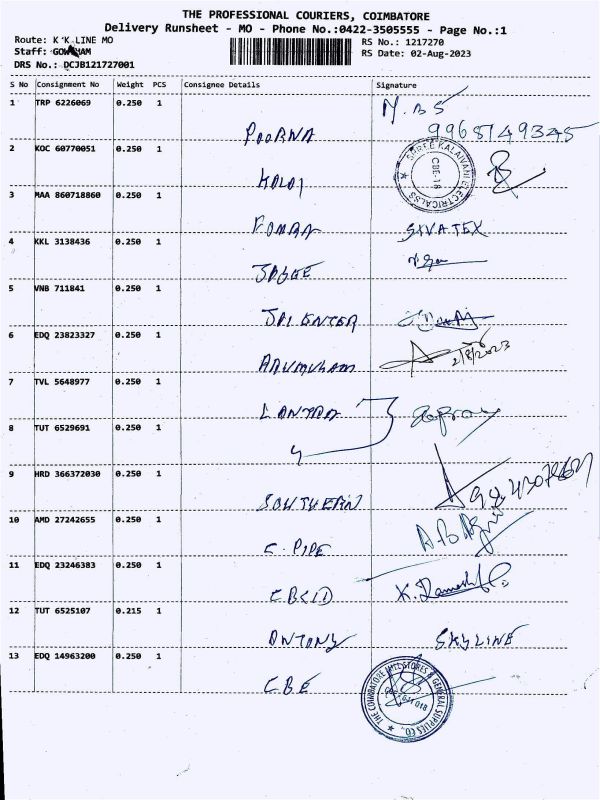 THE PROFESSIONAL COURIERS, COIMBATORE
Delivery Runsheet - MO - Phone No.:0422-3505555 - Page No.:1
Route: K K LINE MO
RS No.: 1217270
Staff: GOWTHAM
RS Date: 02-Aug-2023
DRS No.: DCJB121727001
S No Consignment No Weight PCS Consignee Details Signature
1 TRP 6226069 0.250 1 POORNA M.BS
9968149345
2 KOC 60770051 0.250 1 SHREE KALAIVANI ELECTRICALSS CBE-18
3 MAA 860718860 0.250 1 SIVATEX
4 KKL 3138436 0.250 1
5 VNB 711841 0.250 1 JAI ENTER
6 EDQ 23823327 0.250 1 ARUMUHAM 2/8/2023
7 TVL 5648977 0.250 1 LANTRA
8 TUT 6529691 0.250 1
9 HRD 366372030 0.250 1 SOUTHERN
10 AMD 27242655 0.250 1 C. PIPE
11 EDQ 23246383 0.250 1 CBCID K. Ramesh
12 TUT 6525107 0.215 1 ANTONY SKYLINE
13 EDQ 14963200 0.250 1 CBE
THE COIMBATORE MILL STORES & GENERAL SUPPLIES CO.